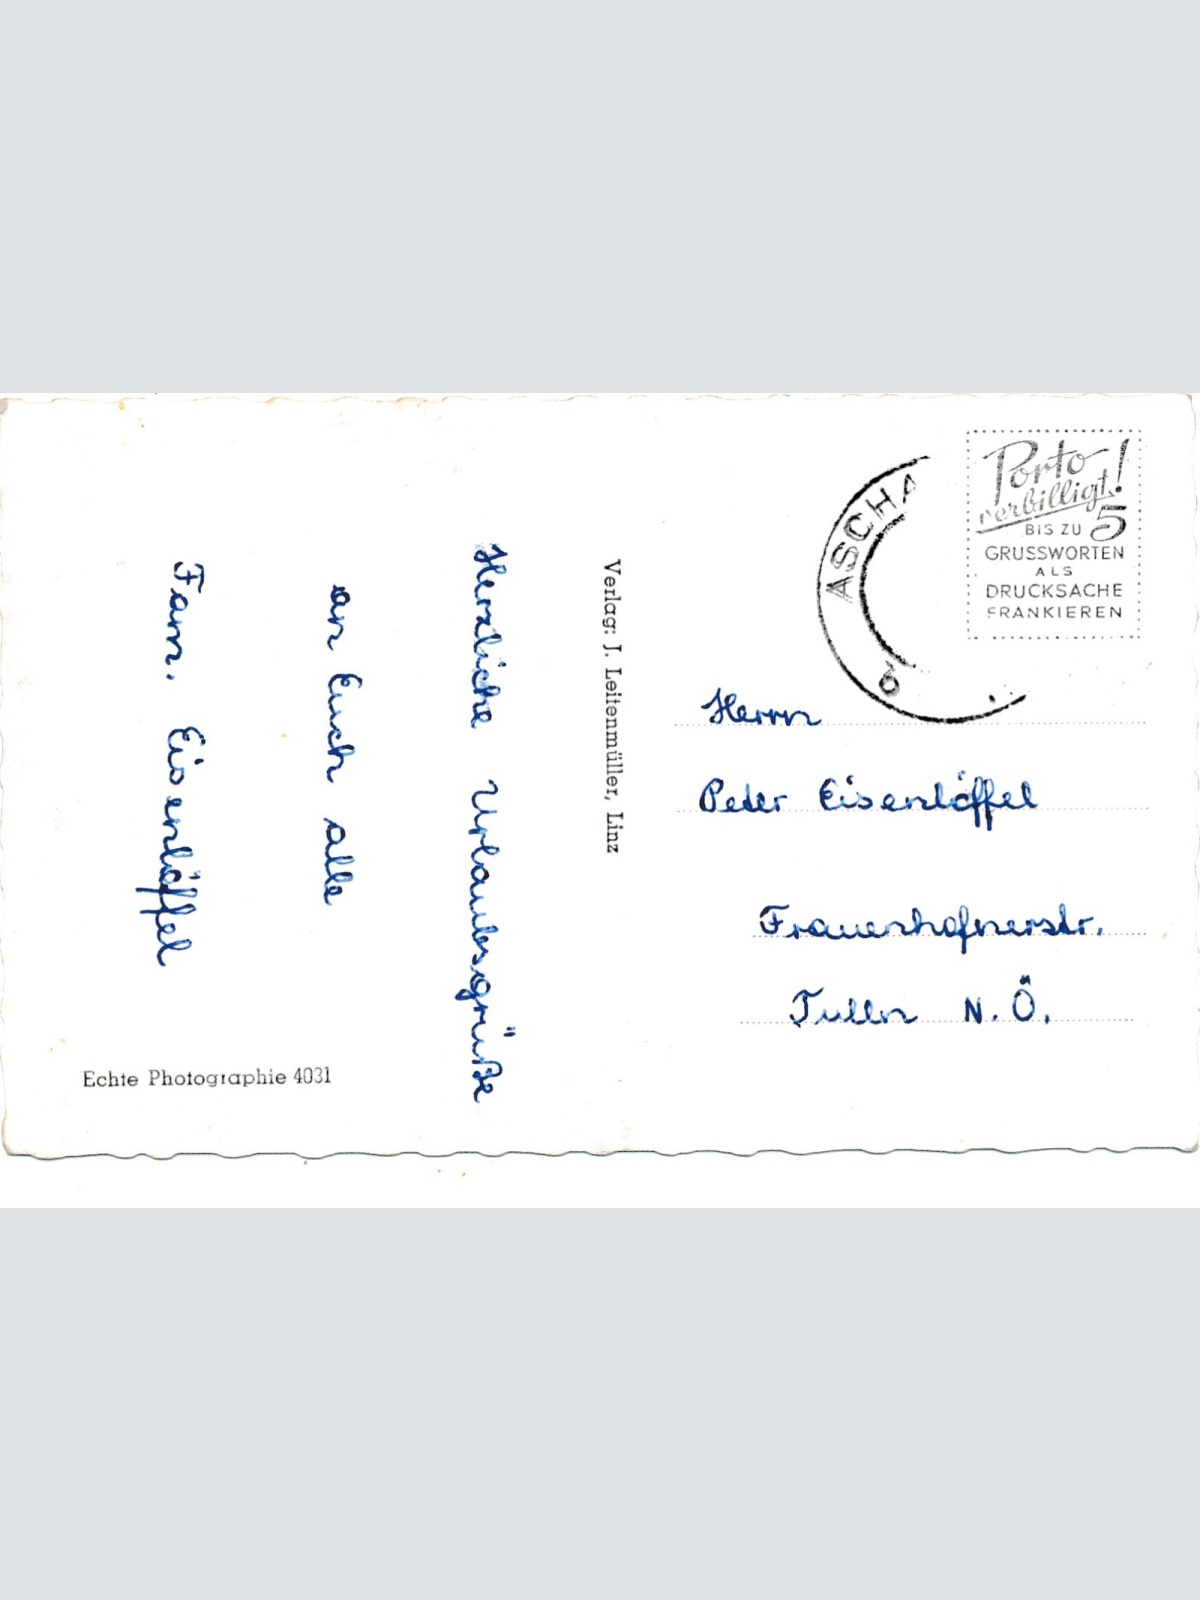 Herzliche Urlaubsgrüße
an Euch alle
Fam. Eisenlöffel
Echte Photographie 4031
Verlag: J. Leitenmüller, Linz
ASCHA
Porto
verbilligt!
BIS ZU 5
GRUSSWORTEN
ALS
DRUCKSACHE
FRANKIEREN
Herrn
Peter Eisenlöffel
Frauenhofnerstr.
Tulln N.Ö.